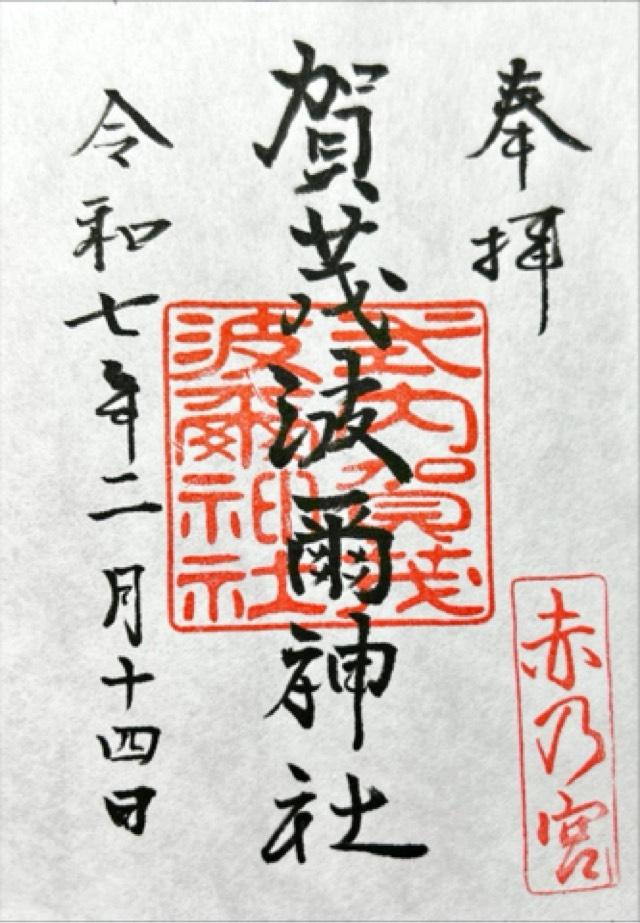 奉拝
赤乃宮
賀茂波爾神社
式内賀茂
波爾神社
令和七年二月十四日